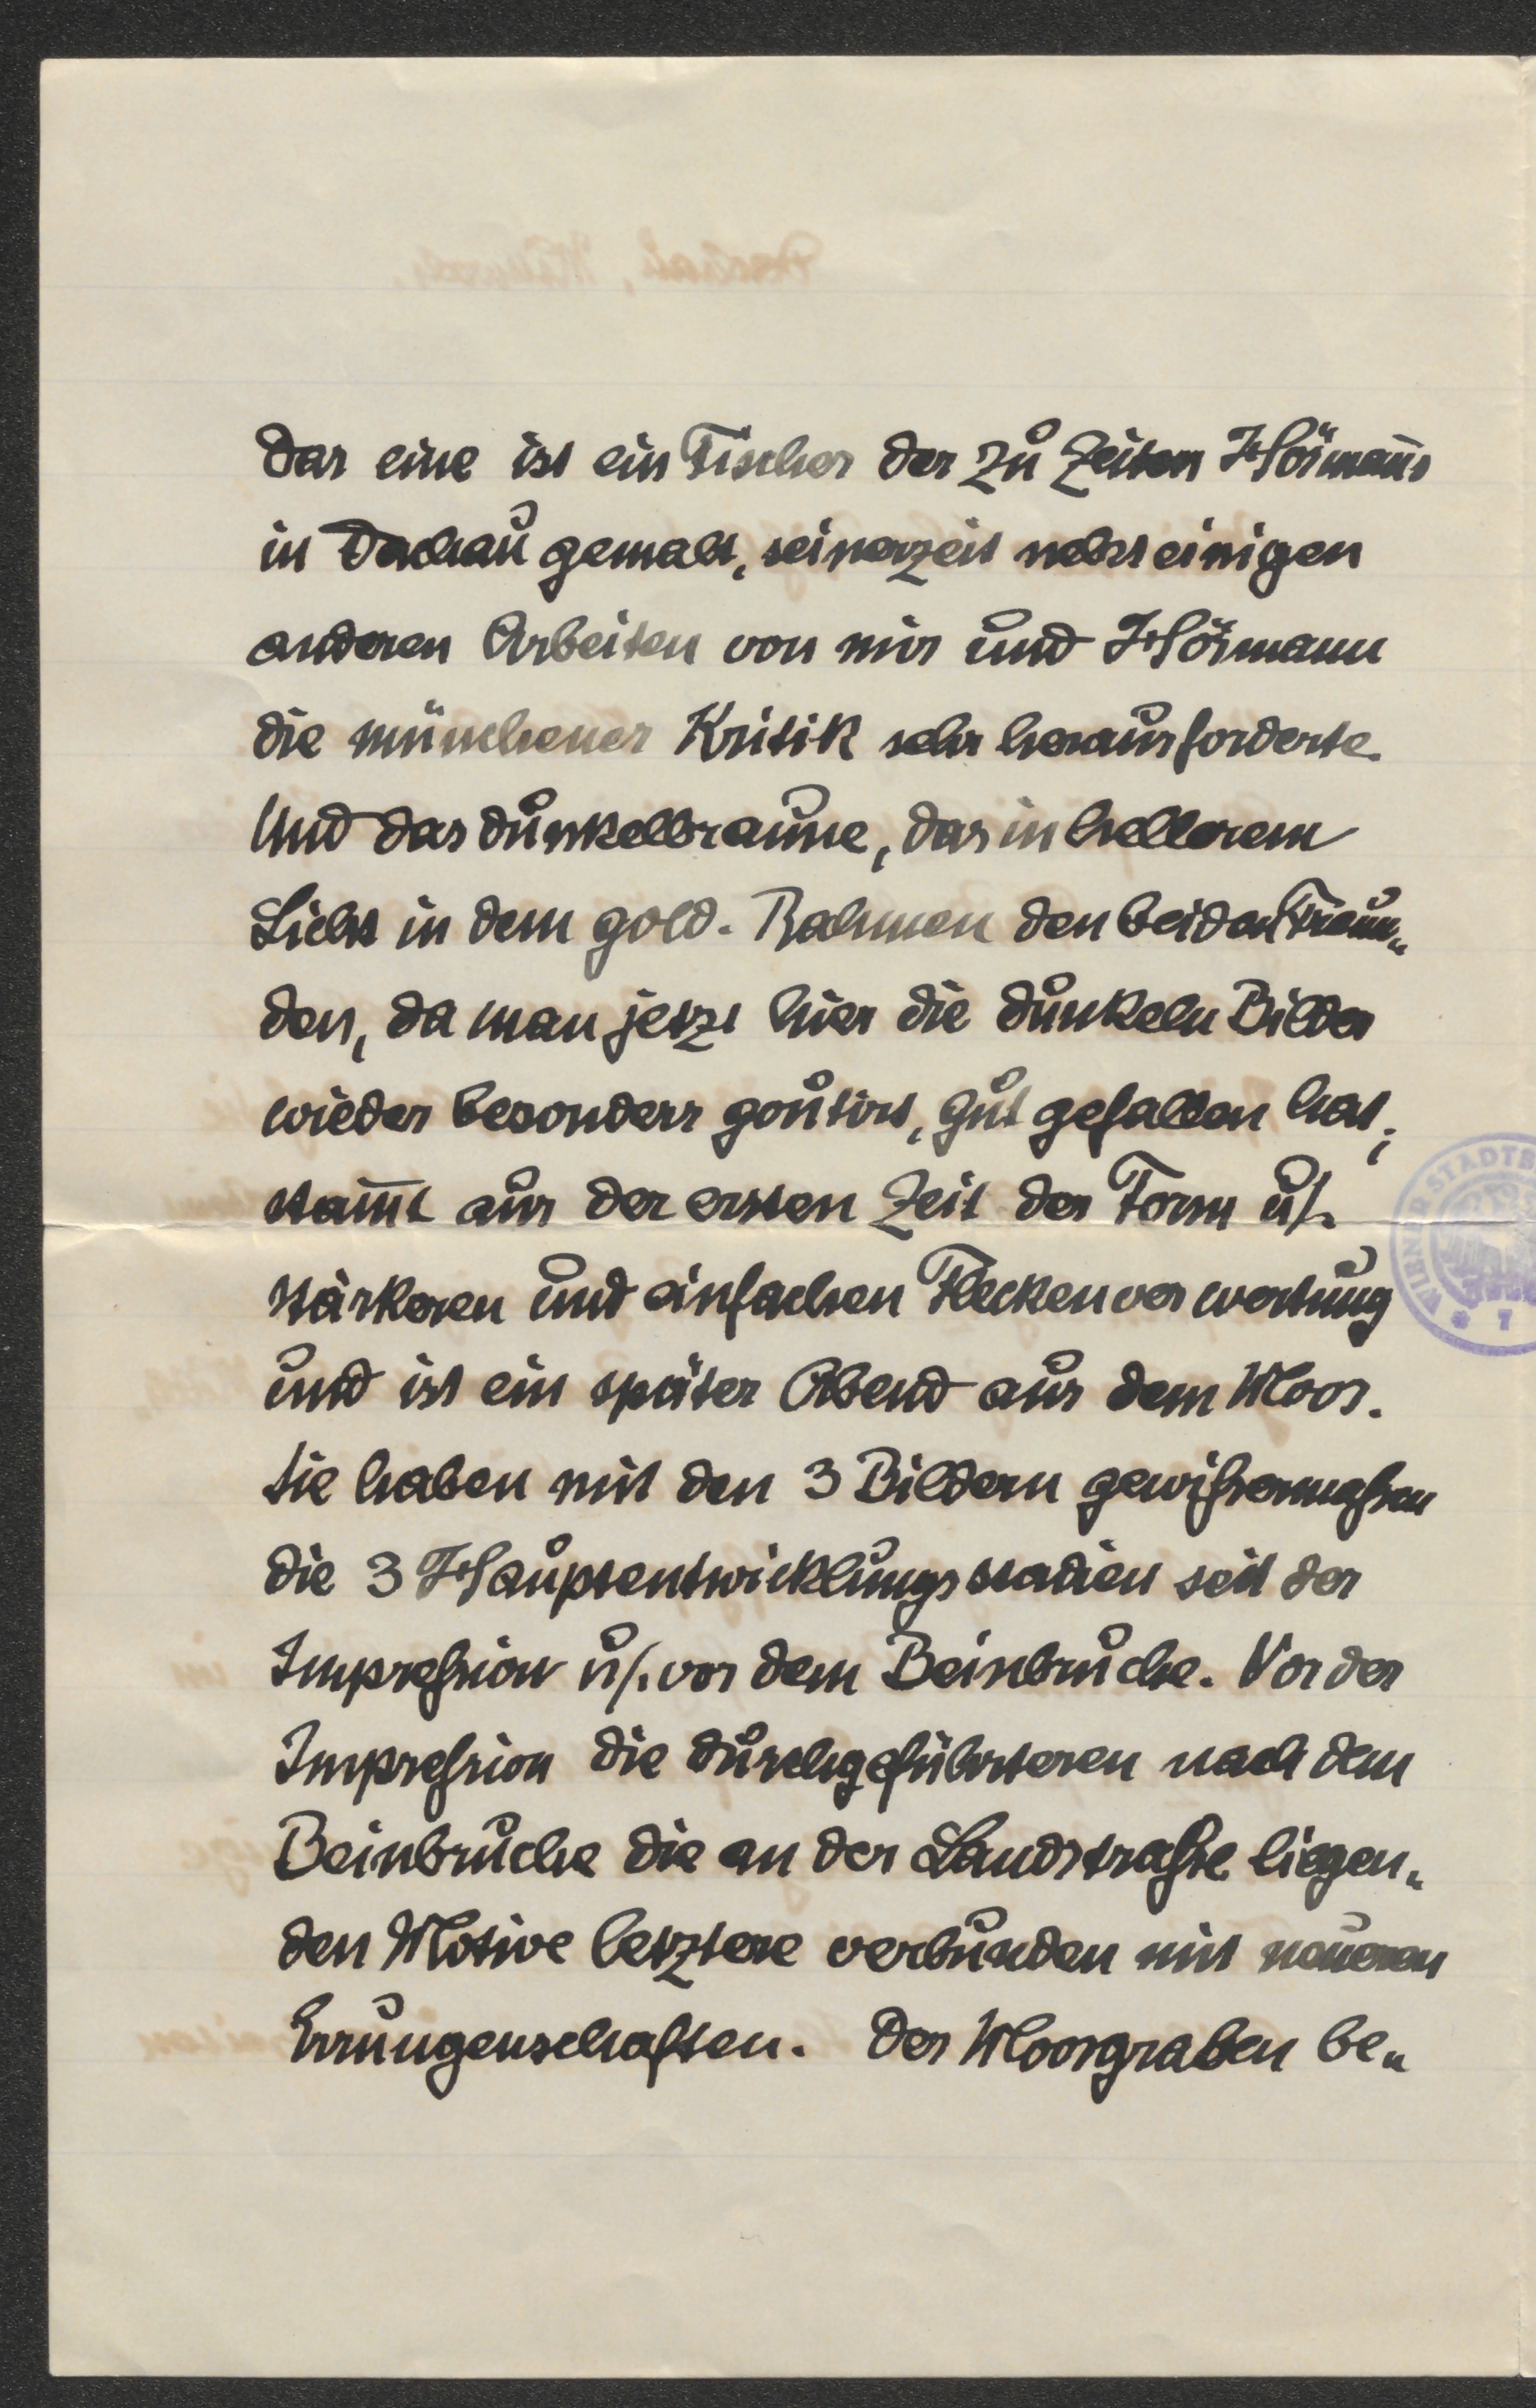 Das eine ist ein Fischer der zu Zeiten Hörmañs
in Dachau gemalt, seinerzeit nebst einigen
anderen Arbeiten von mir und Hörmann
die münchener Kritik sehr herausforderte.
Und das dunkelbraune, das in hellerem
Licht in dem gold. Rahmen den beiden Freun„
den, da man jetzt hier die dunkeln Bilder
wieder besonders goutirt, gut gefallen hat;
stam̄t aus der ersten Zeit der Form u/.
stärkeren und einfachen Fleckenverwertung
und ist ein später Abend aus dem Moos.
Sie haben mit den 3 Bildern gewißermaßen
die 3 Hauptentwicklungsstadien seit der
Impreßion u/. vor dem Beinbruche. Vor der
Impreßion die durchgeführteren nach dem
Beinbruche die an der Landstraße liegen„
den Motive letztere verbunden mit neueren
Errungenschaften. Der Moosgraben be„
WIENER STADTB
7